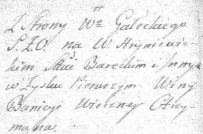 Z Strony Wo Gałeckiego
S.Z.O. na W. Hryniewic
kim Star Bareckim i Innych
w Zysku Pierwszym Winy
Banicyi Wieczney Otrzy
mana.